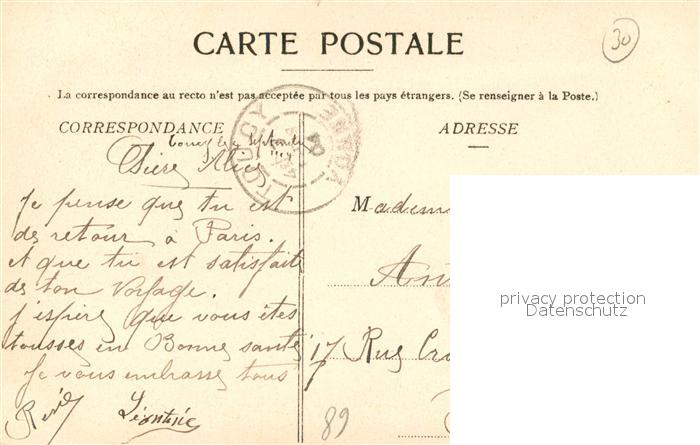 30
CARTE POSTALE
La correspondance au recto n'est pas acceptée par tous les pays étrangers. (Se renseigner à la Poste.)
CORRESPONDANCE
ADRESSE
TOUCY
YONNE
Toucy le 4 Septembre
Chère Alice
Je pense que tu est
de retour à Paris.
et que tu est satisfaite
de ton Voyage.
J'espère que vous êtes
tousses en Bonne santé
Je vous embrasse tous
René Léontine
Madem
17 Rue
89
privacy protection
Datenschutz